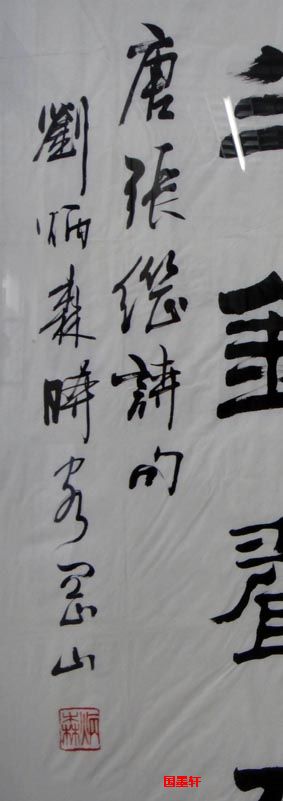 唐張繼詩句
劉炳森時客岡山
炳森
国墨轩